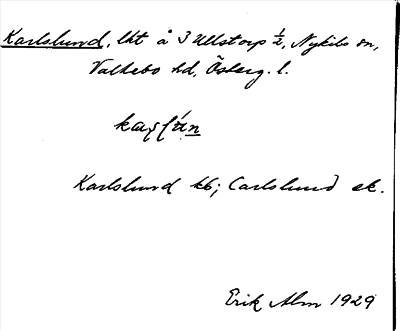 Karlslund, lht å 3 Ullstorp ½, Nykils sn,
Valkebo hd, Österg. l.
Karlslund kb; Carlslund ek.
Erik Alm 1929